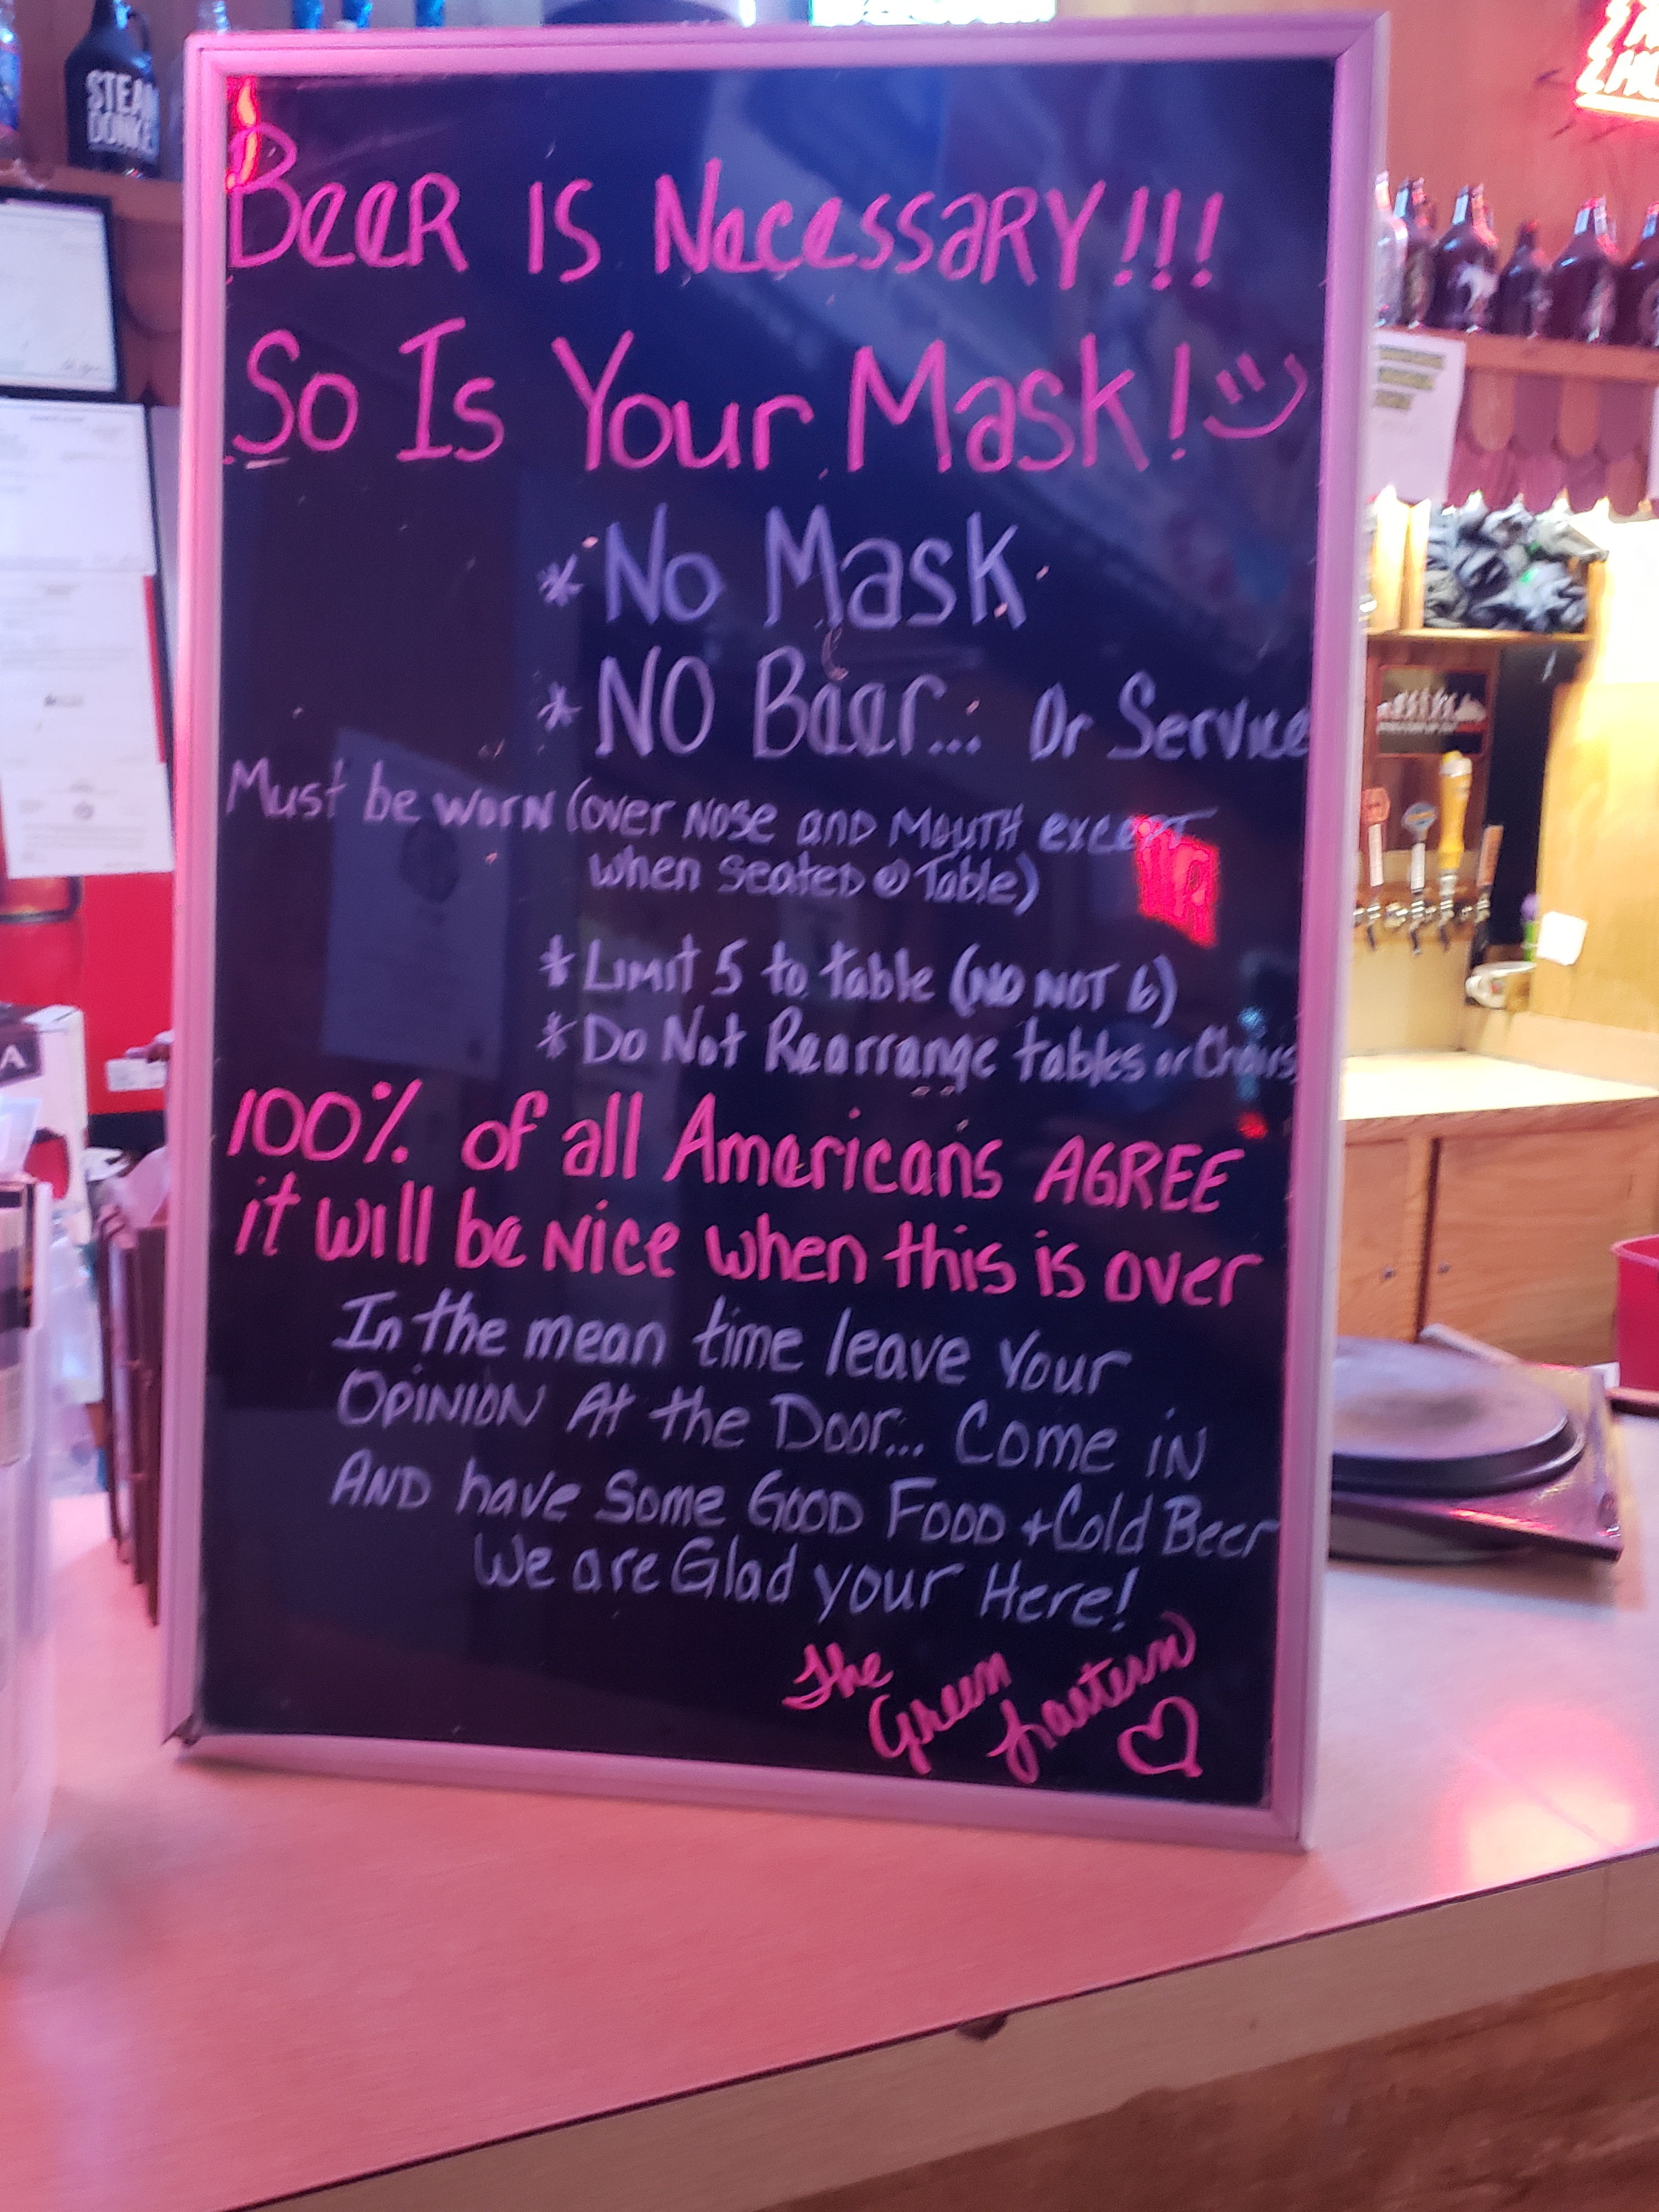 STEAM
DONKE
Beer is Necessary!!!
So Is Your Mask!
* No Mask
* NO Beer... Or Service
Must be worn (over Nose and Mouth except
when seated @ Table)
* Limit 5 to table (NO NOT 6)
* Do Not Rearrange tables or Chairs
100% of all Americans AGREE
it will be Nice when this is over
In the mean time leave Your
OPINION At the Door... Come iN
AND have Some Good Food + Cold Beer
We are Glad your Here!
The
Green
Lantern